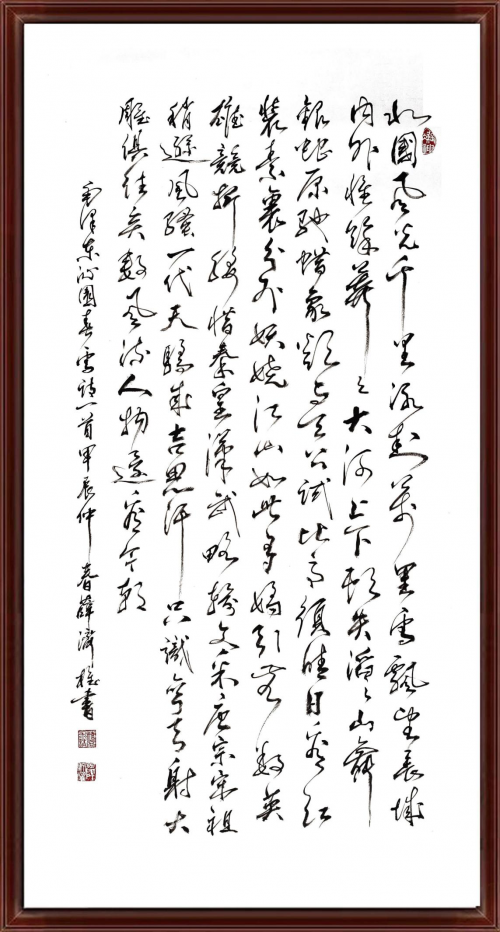 北國風光千里冰封萬里雪飄望長城
内外惟餘莽々大河上下頓失滔々山舞
銀蛇原馳蜡象欲與天公試比高須晴日看红
裝素裹分外妖嬈江山如此多嬌引無數英
雄競折腰惜秦皇漢武略輸文采唐宗宋祖
稍遜風騷一代天驕成吉思汗只識彎弓射大
雕俱往矣數風流人物還看今朝
毛澤東沁園春雪詩一首甲辰仲春薛濟書